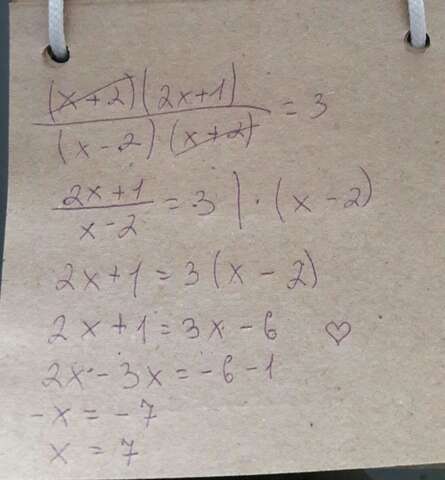 (x+2)(2x+1)/(x-2)(x+2) = 3
2x+1/x-2 = 3 | · (x-2)
2x+1 = 3(x-2)
2x+1 = 3x-6 ♡
2x-3x = -6-1
-x = -7
x = 7